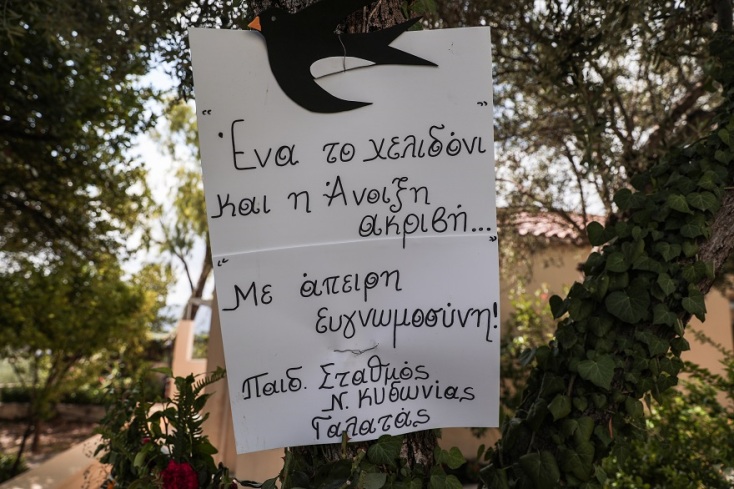 "Ένα το χελιδόνι"
και η Άνοιξη
ακριβή..."
"Με άπειρη
ευγνωμοσύνη!
Παιδ. Σταθμός
Ν. Κυδωνίας
Γαλατάς